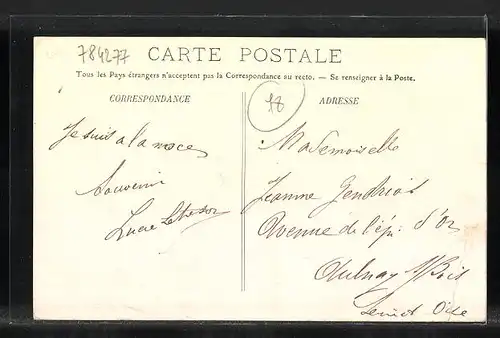 784277
CARTE POSTALE
Tous les Pays étrangers n'acceptent pas la Correspondance au recto. — Se renseigner à la Poste.
CORRESPONDANCE
Je suis a la noce
Souvenir
Lucie
18
ADRESSE
Mademoiselle
Jeanne Gendriot
Avenue de l'épi d'Or
Aulnay s/Bois
Seine et Oise